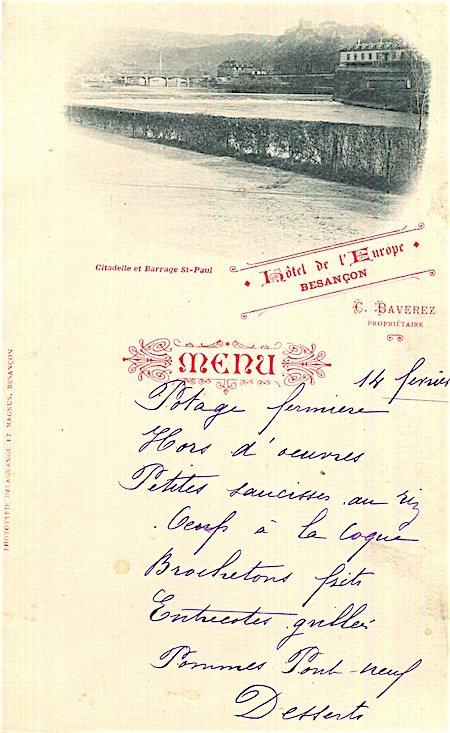 Citadelle et Barrage St-Paul
Hôtel de l'Europe
BESANÇON
C. BAVEREZ
PROPRIÉTAIRE
MENU
14 février
Potage fermiere
Hors d'oeuvres
Petites saucisses au riz
Oeufs à la Coque
Brochetons frits
Entrecotes grillées
Pommes Pont-neuf
Desserts
PHOTOTYPIE DELAGRANGE ET MAGNUS, BESANÇON